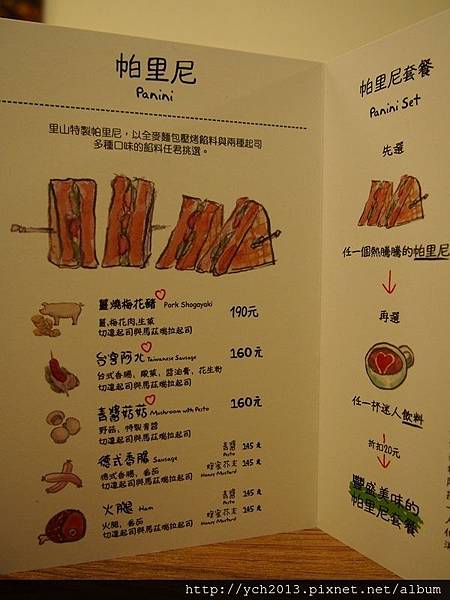 帕里尼
Panini
里山特製帕里尼，以全麥麵包壓烤餡料與兩種起司
多種口味的餡料任君挑選。
薑燒梅花豬 Pork Shogayaki 190元
薑,梅花肉,生菜
切達起司與馬茲瑞拉起司
台客阿九 Taiwanese Sausage 160元
台式香腸、酸菜、醬油膏、花生粉
切達起司與馬茲瑞拉起司
青醬菇菇 Mushroom with Pesto 160元
野菇、特製青醬
切達起司與馬茲瑞拉起司
德式香腸 Sausage
德式香腸、番茄
切達起司與馬茲瑞拉起司
青醬 145元
Pesto
蜂蜜芥末 145元
Honey Mustard
火腿 Ham
火腿、番茄
切達起司與馬茲瑞拉起司
青醬 145元
Pesto
蜂蜜芥末 145元
Honey Mustard
帕里尼套餐
Panini Set
先選
任一個熱騰騰的帕里尼
再選
任一杯迷人飲料
折扣20元
豐盛美味的
帕里尼套餐
http://ych2013.pixnet.net/album